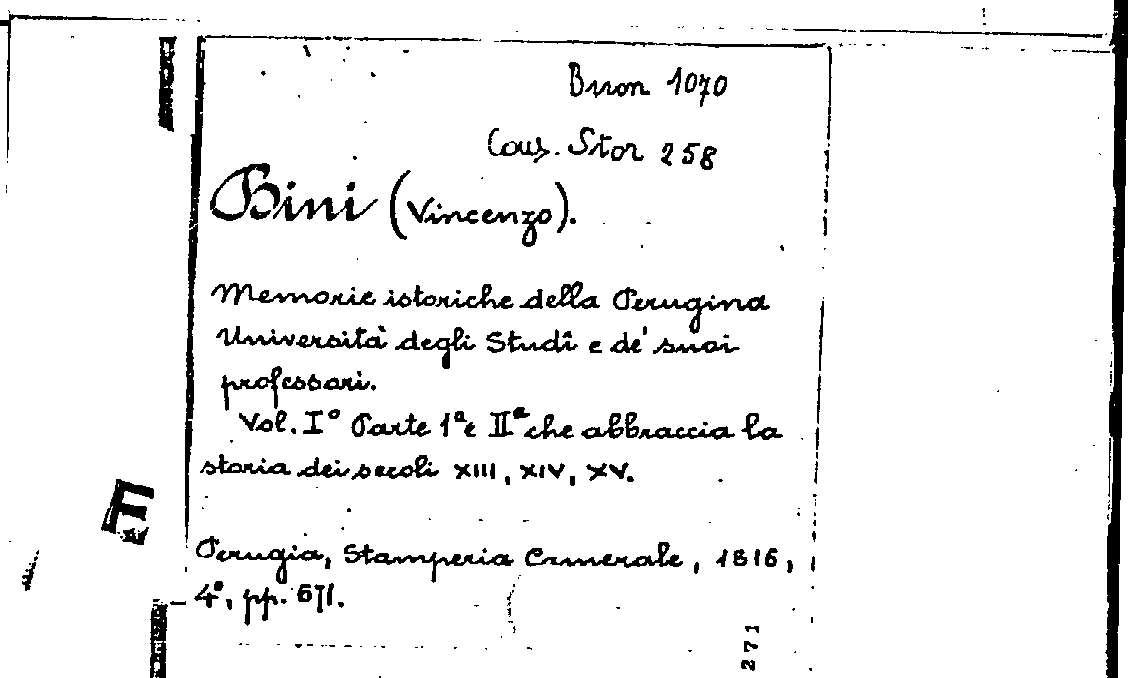 Buon 1070
Caus. Stor 258
Bini (Vincenzo).
Memorie istoriche della Perugina
Università degli Studî e de' suoi
professori.
Vol. I° Parte 1ª e IIª che abbraccia la
storia dei secoli XIII, XIV, XV.
Perugia, Stamperia Camerale, 1816,
4°, pp. 671.
271